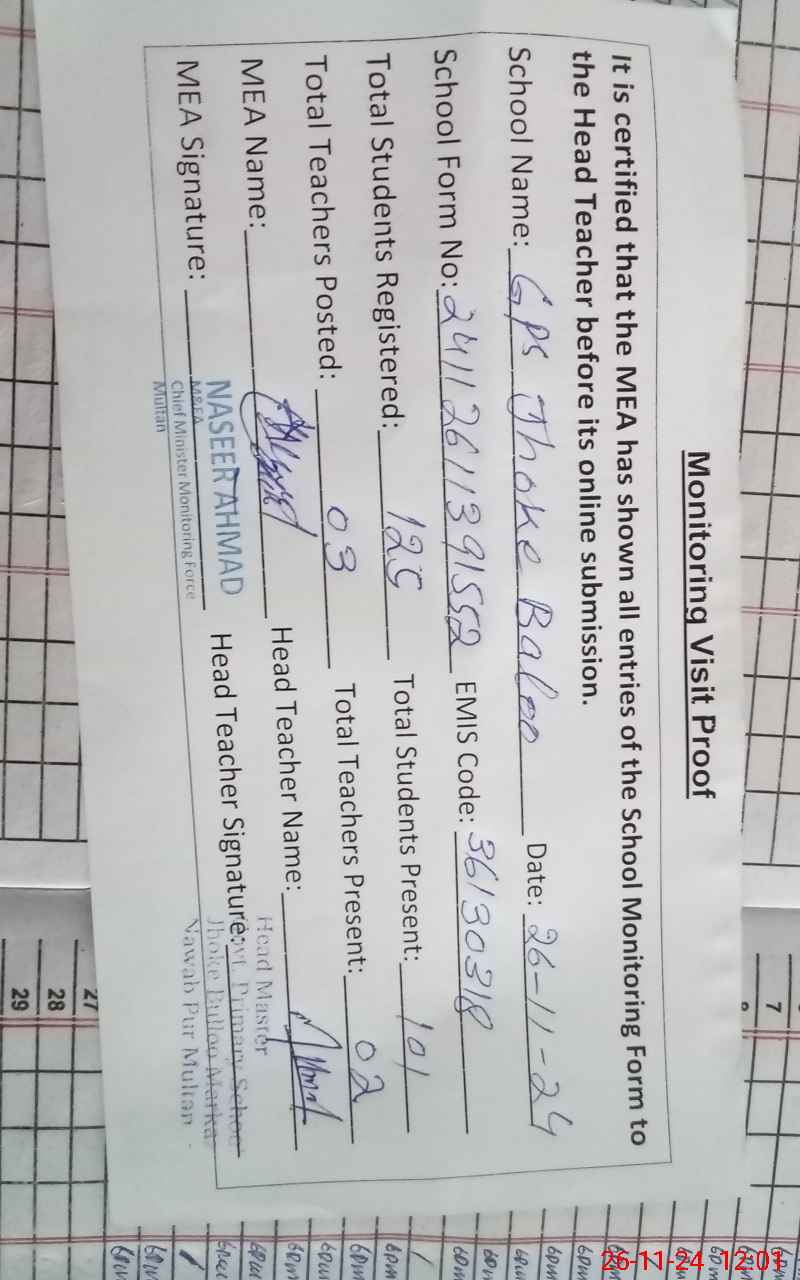 Monitoring Visit Proof
It is certified that the MEA has shown all entries of the School Monitoring Form to
the Head Teacher before its online submission.
School Name: Gps Jhoke Baloo Date: 26-11-24
School Form No: 24112611391552 EMIS Code: 36130318
Total Students Registered: 125 Total Students Present: 101
Total Teachers Posted: 03 Total Teachers Present: 02
MEA Name: Head Teacher Name:
MEA Signature: Head Teacher Signature:
NASEER AHMAD
M&EA
Chief Minister Monitoring Force
Multan
Head Master
Govt. Primary School
Jhoke Bulloo Markaz
Nawab Pur Multan
7
27
28
29
26-11-24 12:01